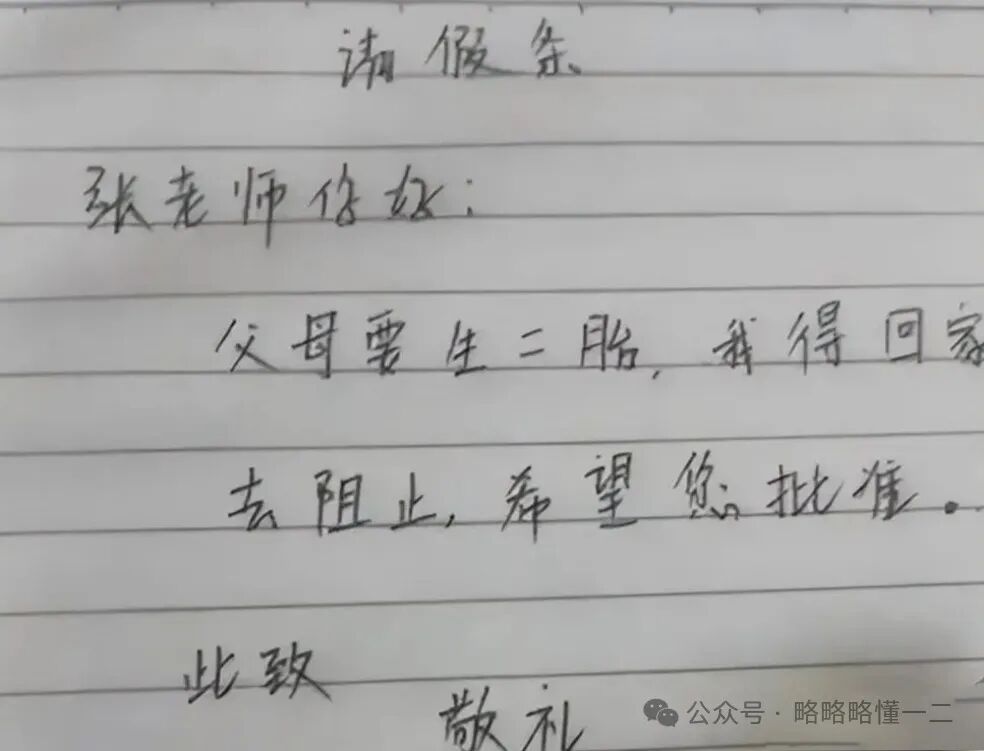 请假条
张老师你好:
父母要生二胎,我得回家
去阻止,希望您批准。
此致
敬礼
公众号·略略略懂一二